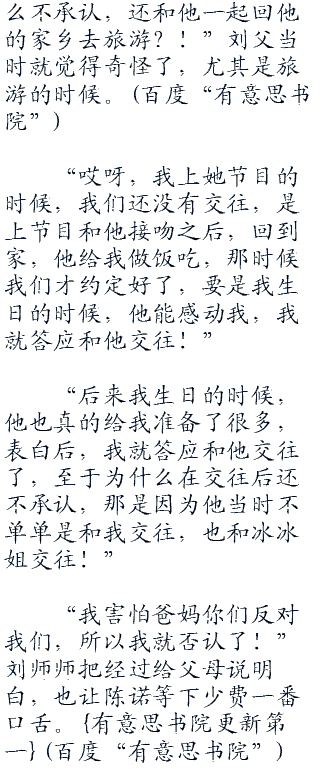 么不承认，还和他一起回他
的家乡去旅游？！”刘父当
时就觉得奇怪了，尤其是旅
游的时候。(百度“有意思书
院”)
“哎呀，我上她节目的
时候，我们还没有交往，是
上节目和他接吻之后，回到
家，他给我做饭吃，那时候
我们才约定好了，要是我生
日的时候，他能感动我，我
就答应和他交往！”
“后来我生日的时候，
他也真的给我准备了很多，
表白后，我就答应和他交往
了，至于为什么在交往后还
不承认，那是因为他当时不
单单是和我交往，也和冰冰
姐交往！”
“我害怕爸妈你们反对
我们，所以我就否认了！”
刘师师把经过给父母说明
白，也让陈诺等下少费一番
口舌。{有意思书院更新第
一}(百度“有意思书院”)